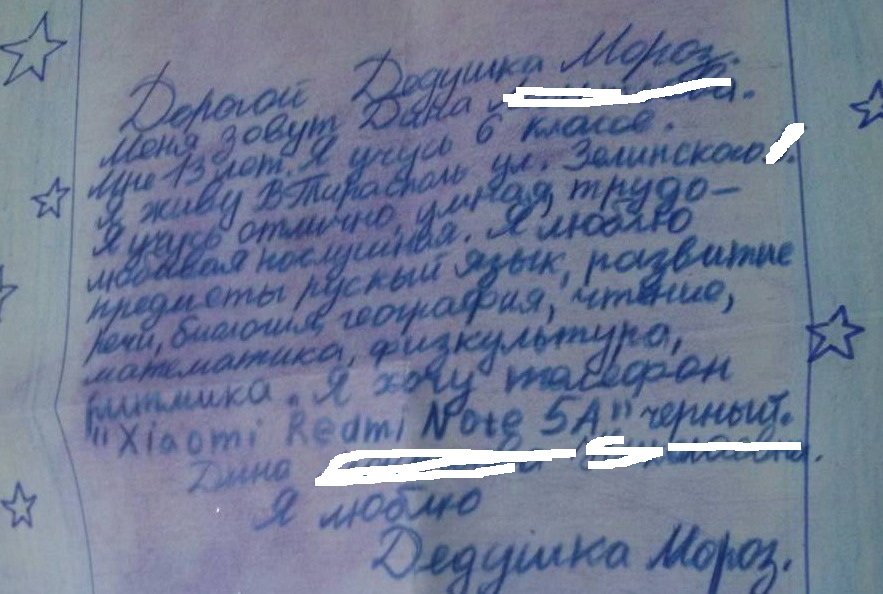 Дорогой Дедушка Мороз.
Меня зовут Дяна
Мне 13 лет. Я учусь 6 классе.
Я живу в Тирасполь ул. Зелинского
Я учусь отлично, умная, трудо-
любивая послушная. Я люблю
предметы руский язык, развитие
речи, биология, география, чтение,
математика, физкультура,
ритмика. Я хочу телефон
"Xiaomi Redmi Note 5A" черный.
Дяна
Я люблю
Дедушка Мороз.